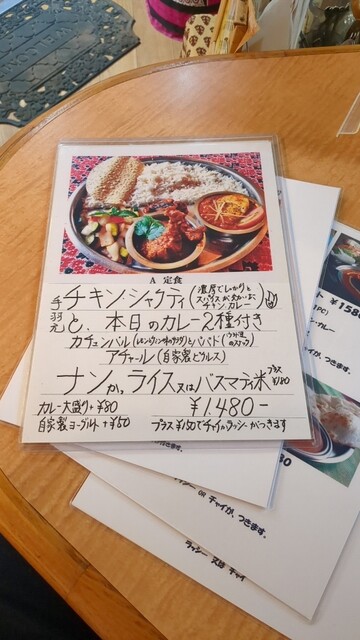 A 定食
手羽元
チキン・シャクティ(濃厚でしっかりとスパイスが
チキンカレー)
と、本日のカレー2種付き
カチュンバル(レモンドレ味のサラダ)とパパド(
アチャール(自家製ピクルス)
ナンか、ライス又はバスマティ米プラス¥180
カレー大盛り+¥80
¥1,480-
自家製ヨーグルト+¥50
プラス¥150でチャイかラッシーがつきます
¥158
カレー
つきます。
ラッシー OR チャイが、つきます。
ラッシー 又は チャイ